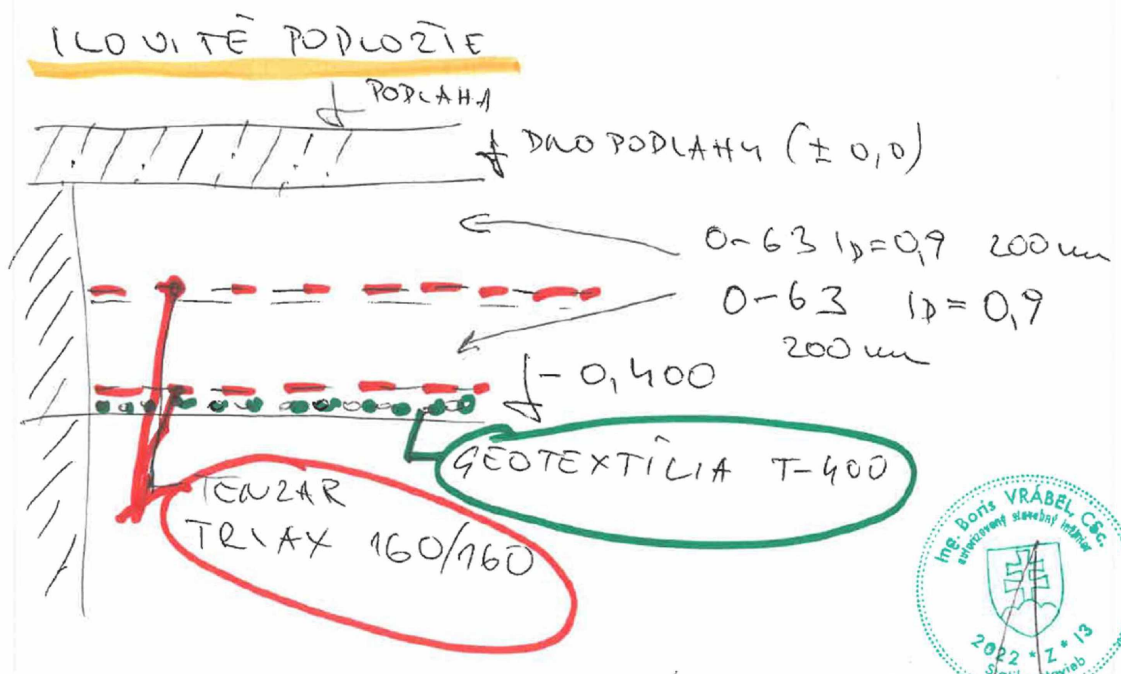 ILOVITÉ PODLOŽIE
PODLAHA
DNO PODLAHY (± 0,0)
0-63 ID=0,9 200 mm
0-63 ID=0,9
200 mm
-0,400
GEOTEXTÍLIA T-400
TENZAR
TRIAX 160/160
Ing. Boris VRÁBEL, CSc.
autorizovaný stavebný inžinier
2022 * Z * 13